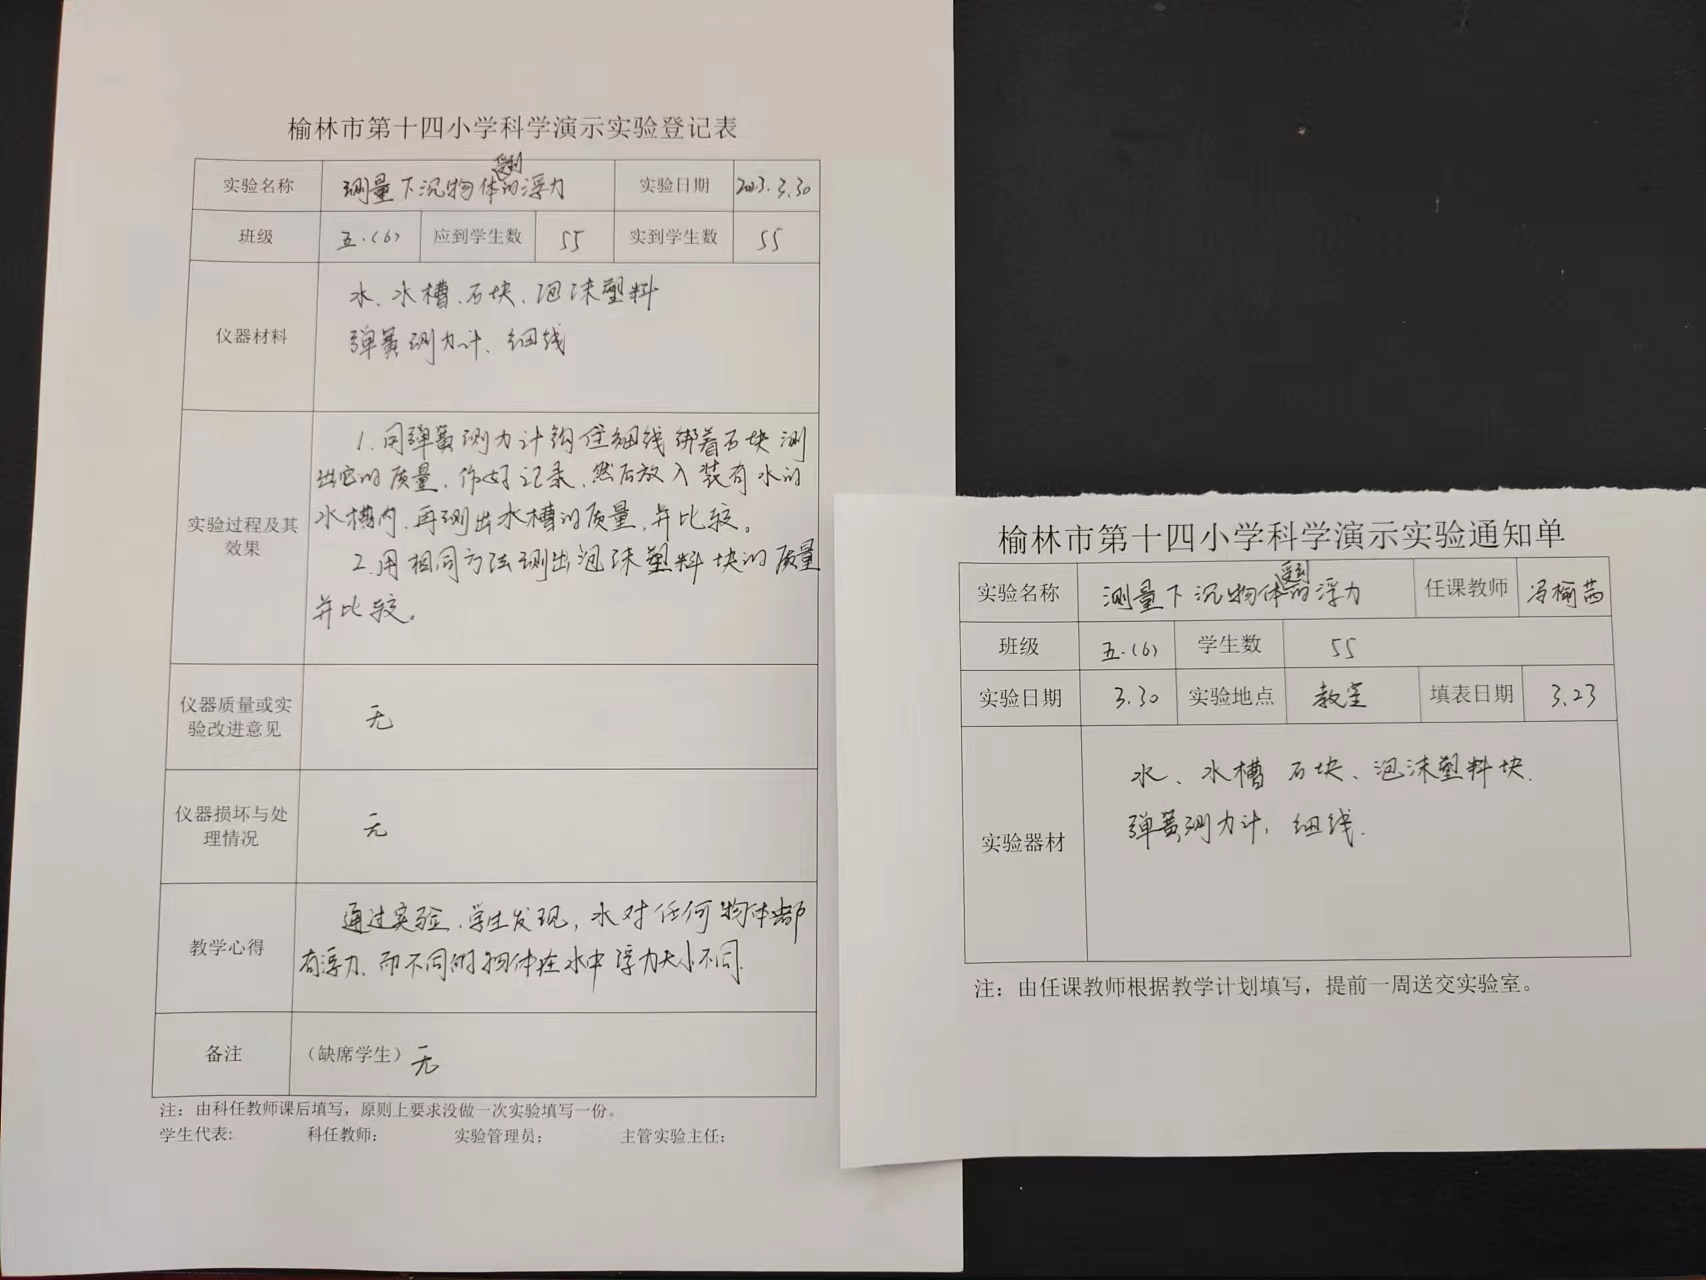 榆林市第十四小学科学演示实验登记表
实验名称 测量下沉物体受到的浮力 实验日期 2023.3.30
班级 五.(6) 应到学生数 55 实到学生数 55
仪器材料
水、水槽、石块、泡沫塑料
弹簧测力计、细线
实验过程及其
效果
1.用弹簧测力计钩住细线绑着石块测
出它的质量,作好记录,然后放入装有水的
水槽内,再测出水槽的质量,并比较。
2.用相同方法测出泡沫塑料块的质量
并比较。
仪器质量或实
验改进意见
无
仪器损坏与处
理情况
无
教学心得
通过实验,学生发现,水对任何物体都
有浮力、而不同的物体在水中浮力大小不同.
备注 (缺席学生) 无
注:由科任教师课后填写,原则上要求没做一次实验填写一份。
学生代表: 科任教师: 实验管理员: 主管实验主任:
榆林市第十四小学科学演示实验通知单
实验名称 测量下沉物体受到的浮力 任课教师 冯榆茜
班级 五.(6) 学生数 55
实验日期 3.30 实验地点 教室 填表日期 3.23
实验器材
水、水槽 石块、泡沫塑料块.
弹簧测力计, 细线.
注:由任课教师根据教学计划填写,提前一周送交实验室。